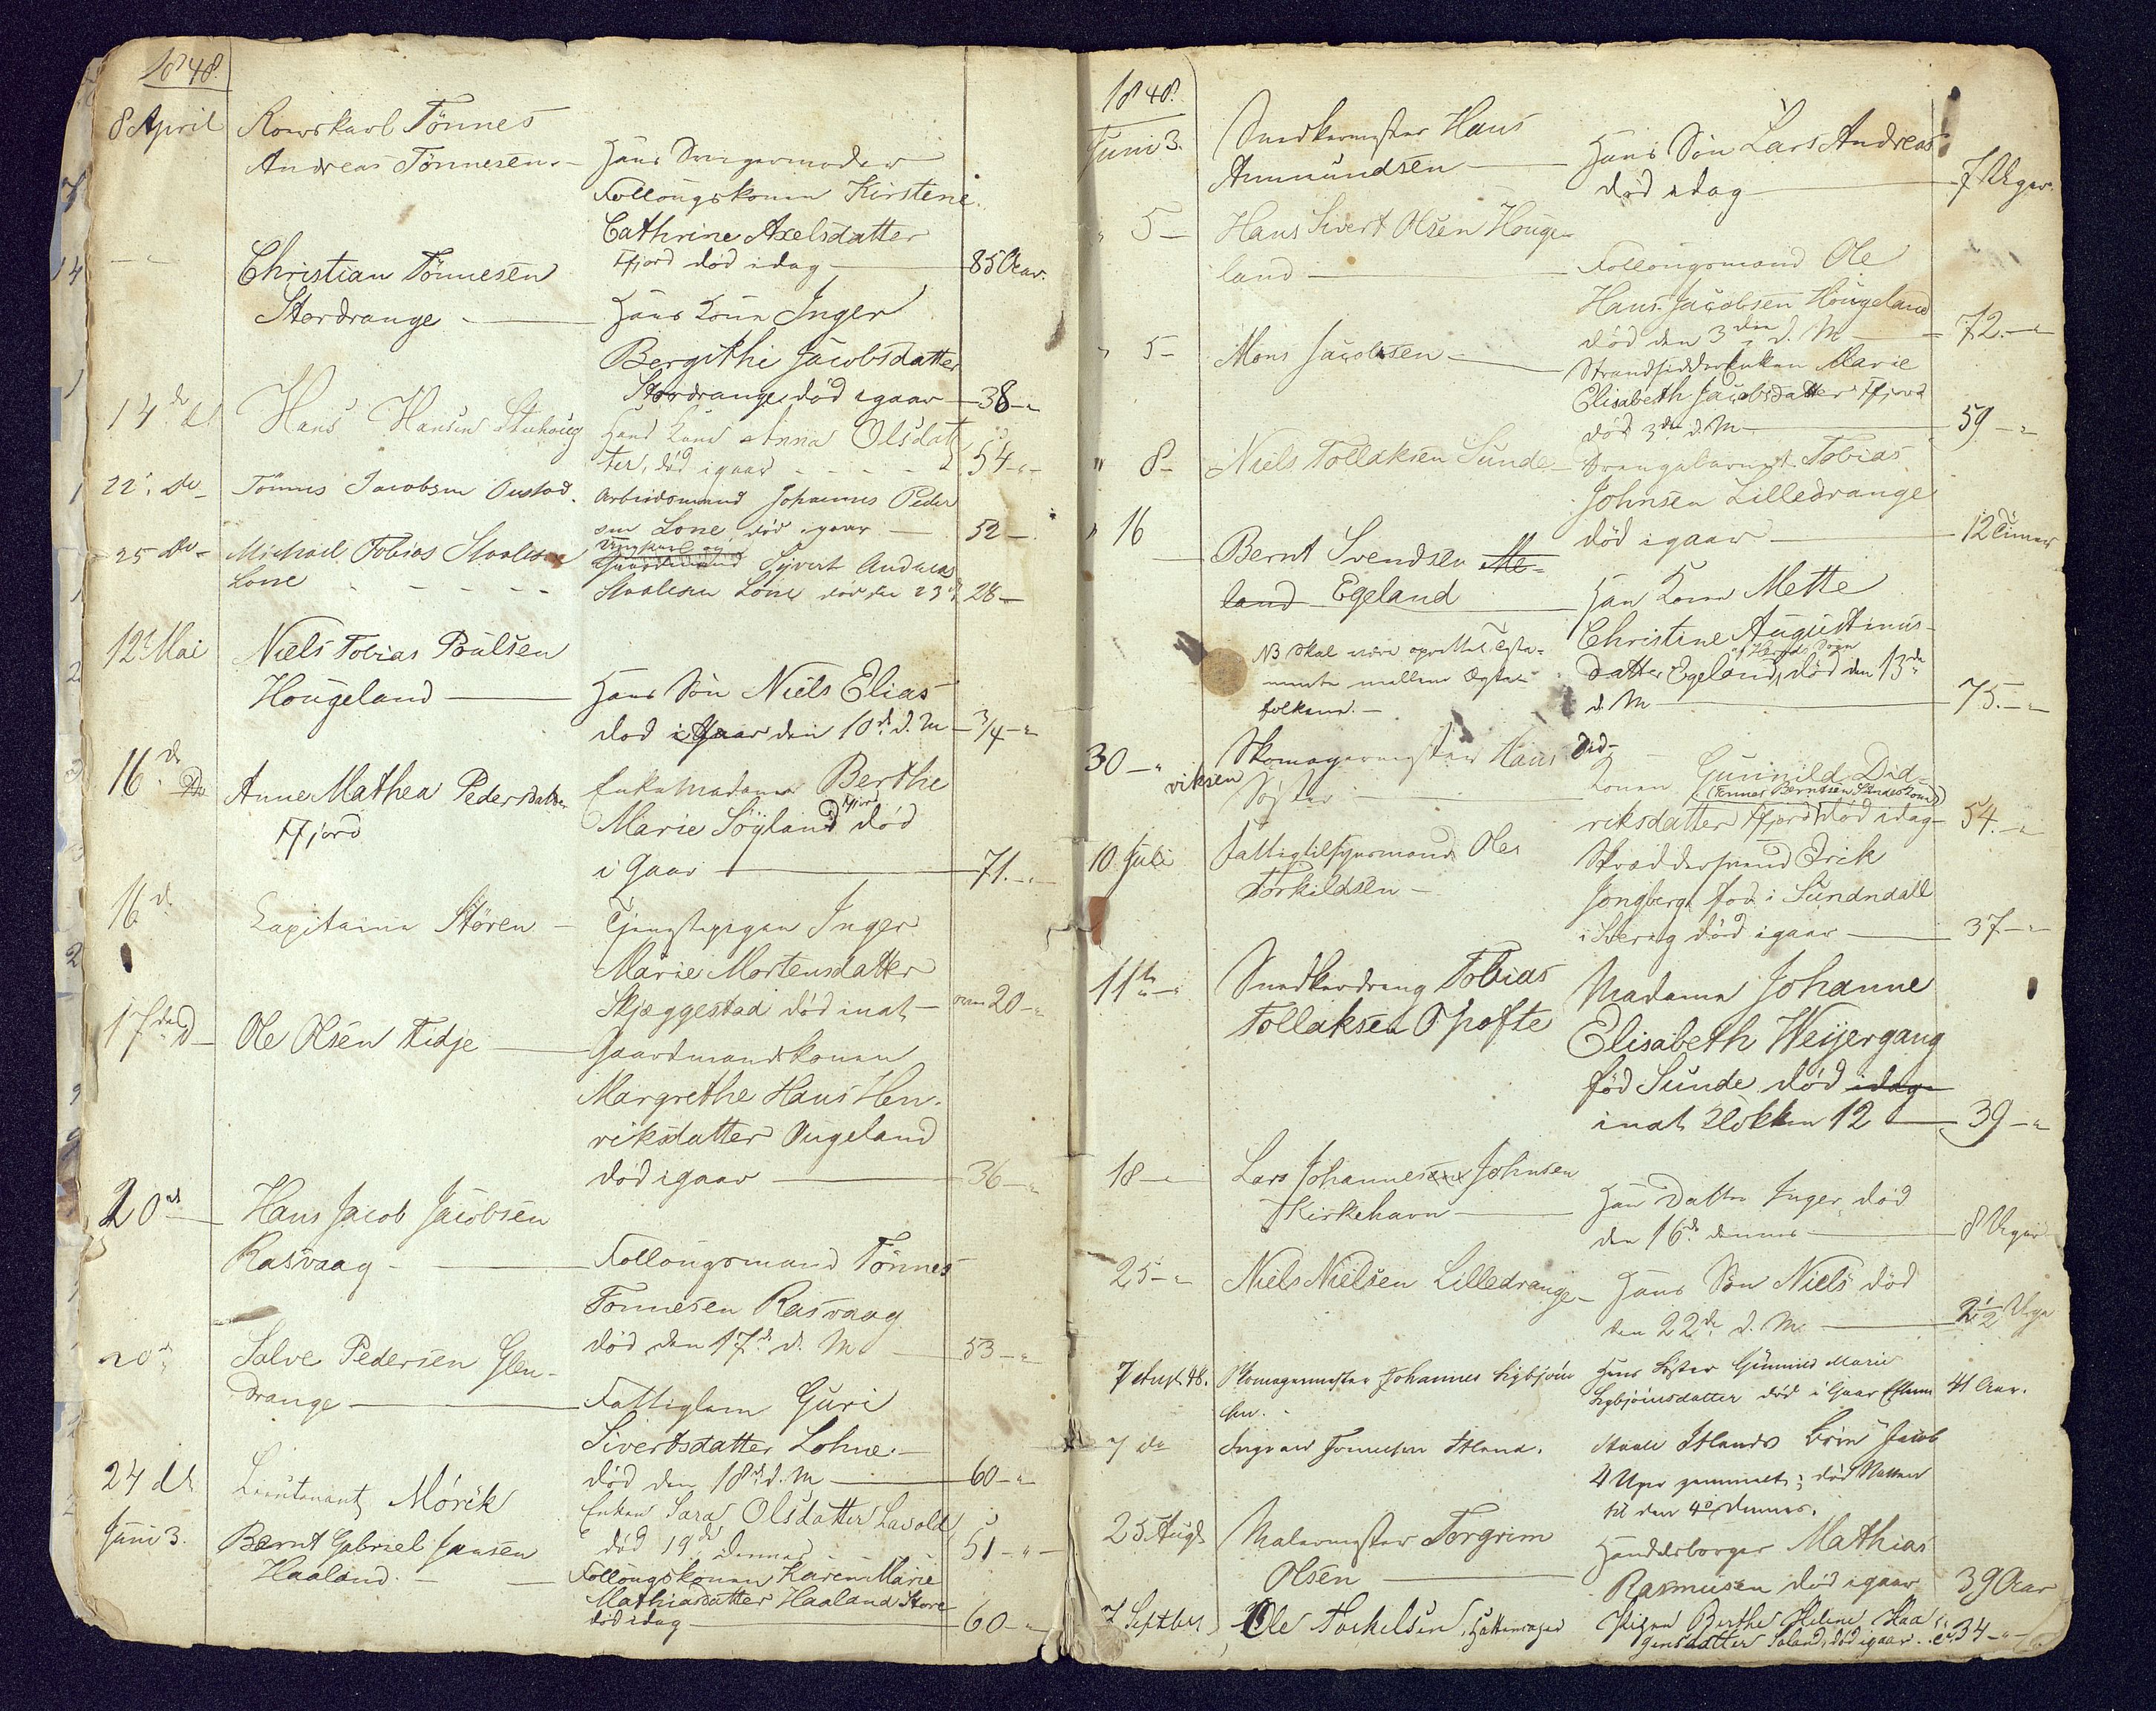 1848.
8 April Roerskarl Tönnes
Andreas Tönnesen - Hans Svigermoder
Follougskonen Kirstene
Cathrine Axelsdatter
Fjord död idag - 85 Aar.
Christian Tönnesen
Stordrange - Hans Kone Inger
Bergithe Jacobsdatter
Stordrange död igaar - 38 -
14 do Hans Hansen Stuhoug Hans Kone Anna Olsdat
ter, död igaar - 54 -
22 do Tönnes Jacobsen Oustad. Arbeidsmand Johannes Peder
sen Lone, död igaar - 52 -
25 do Michael Tobias Staalesen
Ungkarl og Gaardmand Syvert Andreas
Lone - Staalesen Lone död den 23 28 -
12 Mai Niels Tobias Poulsen
Hougeland - Hans Sön Niels Elias
död i Gaar den 10d d. M - 3/4 -
16 do Anne Mathea Pedersdatter Enkemadame Berthe
Fjord Marie Söyland Fjord död
i Gaar - 71. -
16 d Capitaine Stören - Tjenestepigen Inger
Marie Mortensdatter
Skjæggestad död inat - 20 -
17de d - Ole Olsen Tidje - Gaardmandskonen
Margrethe Hans Hen-
riksdatter Ougeland
död igaar - 36 -
20 d Hans Jacob Jacobsen
Rasvaag - Follougsmand Tönnes
Tönnesen Rasvaag
död den 17d d. M. - 53 -
20 d Salve Pedersen Glen-
drange - Fattiglem Guri
Sivertsdatter Lohne.
död den 18d d. M - 60 -
24 do Lieutenant Mörck Enken Sara Olsdatter Lavold
död 19d dennes 51 -
Juni 3. Bernt Gabriel Jansen Follougskonen Karen Marie
Haaland. - Mathiasdatter Haaland Store
död idag - 60 -
1848.
Juni 3. Snedkermester Hans
Ammundsen - Hans Sön Lars Andreas
död idag - 7 Uger.
" 5 - Hans Sivert Olsen Houge-
land - Follougsmand Ole
Hans Jacobsen Hougeland
död den 3die d. M - 72. -
" 5 - Mons Jacobsen - Strandsidderenken Marie
Elisabeth Jacobsdatter Fjord
död 3de d. M - 59 -
" 8 - Niels Tollaksen Sunde - Drengebarnet Tobias
Johnsen Lilledrange
död igaar - 12 Timer
" 16 Bernt Svendsen Me-
land Egeland - Han Kone Mette
Christine Augustinus-
NB skal være oprettet Testa-
mente mellem Ægte-
folkene. -
datter Egeland, död den 13de
d. M - 75. -
30 - Skomagermester Hans Did-
riksen
Söster - Konen Gunnild Did-
(Tönnes Berntsen Sundes Kone)
riksdatter Fjord död idag - 54. -
10 Juli Fattigtilsynsmand Ole
Torkildsen - Skræddersvend Erik
Jongberg, föd i Sundndall
i Sverig död igaar - 37 -
11te - Snedkerdreng Tobias Madame Johanne
Tollaksen Opofte Elisabeth Weyergang
föd Sunde, död idag
inat Klokken 12 - 39 -
18 - Lars Johannesen Johnsen
Kirkehavn - Han Datter Inger, död
den 16d dennes - 8 Uger
25 - Niels Nielsen Lilledrange - Hans Sön Niels död
den 22de d. M. - 2 1/2 Uge
7 Aug 48. Skomagermester Johannes Sigbjörn Hans Söster Gunnild Marie
sen. - Sigbjörnsdatter död i Gaar Efterm 41 Aar.
7 do Ingvar Tönnesen Itland. Staale Itlands Barn Jacob
4 Uger gammelt; död Natten
til den 4de dennes.
25 Augt Malermester Torgrim Handelsborger Mathias
Olsen - Rasmusen död igaar 39 Aar
7 Septbr Ole Torkelsen, Hattemager Pigen Berthe Helene Haa
gensdatter Saland, död igaar. 34 -